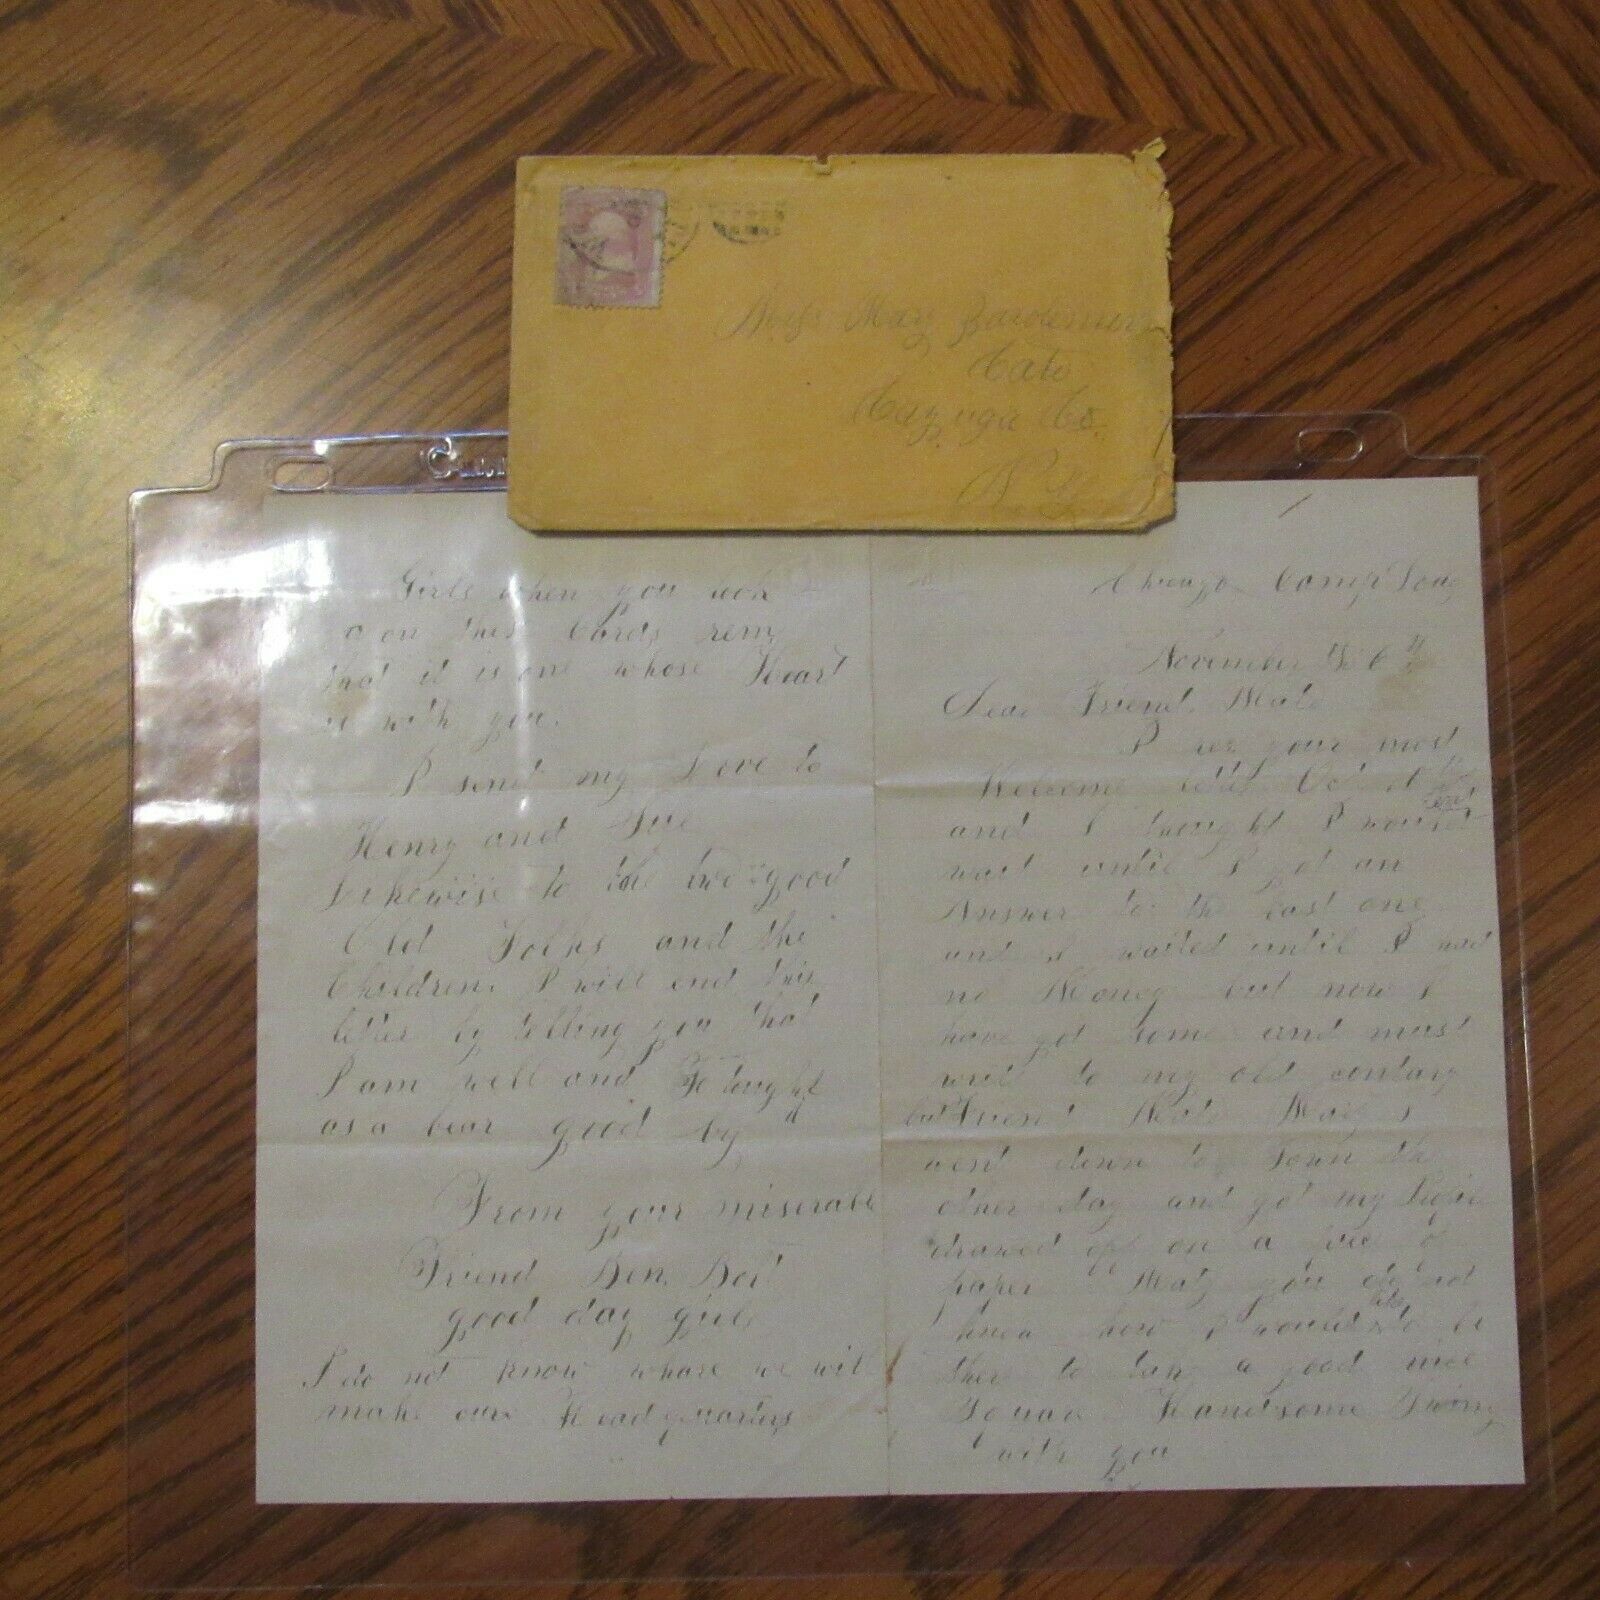 Miss Mary
Cato
Cayuga Co.
N Y
Girls when you look
on this Cards rem
that it is one whose Heart
is with you.
I send my Love to
Henry and Sue
Likewise to the two good
Old Folks and the
Children. I will end this
letter by telling you that
I am well and tough
as a bear good by
From your miserable
Friend Ben. Bolt
good day girls
I do not know whare we wil
make oure Head quarters
Chicago Camp
November 6th
Dear Friend Mate
I your most
Welcome
and I thought I would
wait until I got an
Answer to the last one
and I waited until I had
no Money but now I
have got some and must
writ to my old
but Friend Mate I
went down to Town the
other day and got my
drawed off on a of
paper Maty you do not
know how I would like to be
ther to take a good nice
Square Handsome Swing
with you